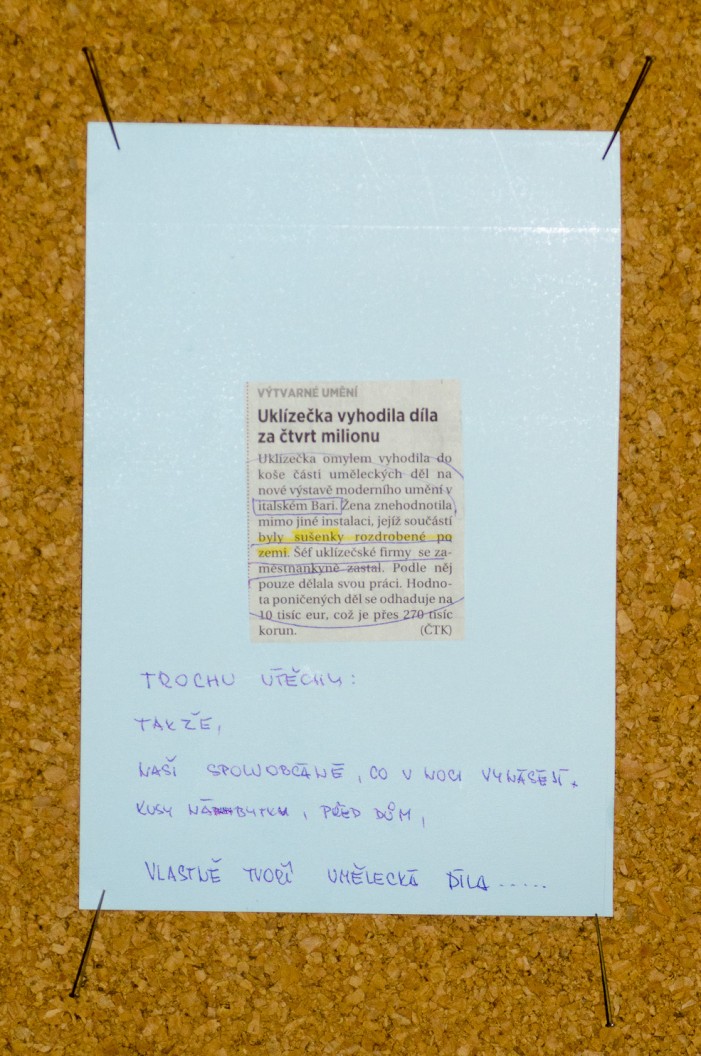 VÝTVARNÉ UMĚNÍ
Uklízečka vyhodila díla
za čtvrt milionu
Uklízečka omylem vyhodila do
koše části uměleckých děl na
nové výstavě moderního umění v
italském Bari. Žena znehodnotila
mimo jiné instalaci, jejíž součástí
byly sušenky rozdrobené po
zemi. Šéf uklízečské firmy se za-
městnankyně zastal. Podle něj
pouze dělala svou práci. Hodno-
ta poničených děl se odhaduje na
10 tisíc eur, což je přes 270 tisíc
korun. (ČTK)
TROCHU ÚTĚCHY:
TAKŽE,
NAŠI SPOLUOBČANÉ, CO V NOCI VYNÁŠEJÍ
KUSY NÁBYTKU, PŘED DŮM,
VLASTNĚ TVOŘÍ UMĚLECKÁ DÍLA......